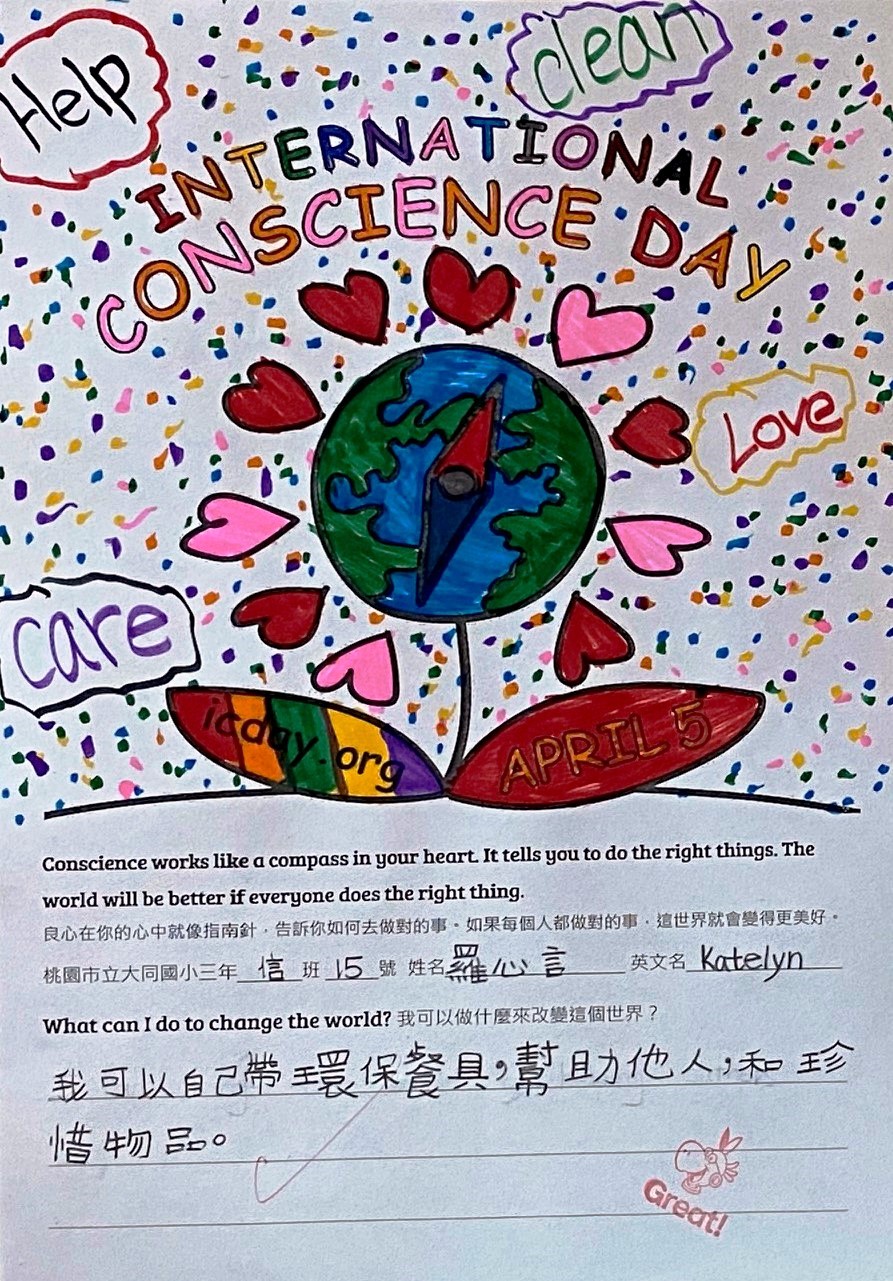 Help
clean
INTERNATIONAL
CONSCIENCE DAY
Love
care
icday.org
APRIL 5
Conscience works like a compass in your heart. It tells you to do the right things. The
world will be better if everyone does the right thing.
良心在你的心中就像指南針，告訴你如何去做對的事。如果每個人都做對的事，這世界就會變得更美好。
桃園市立大同國小三年 信 班 15 號 姓名 羅心言 英文名 Katelyn
What can I do to change the world? 我可以做什麼來改變這個世界？
我可以自己帶環保餐具，幫助他人，和珍
惜物品。
Great!